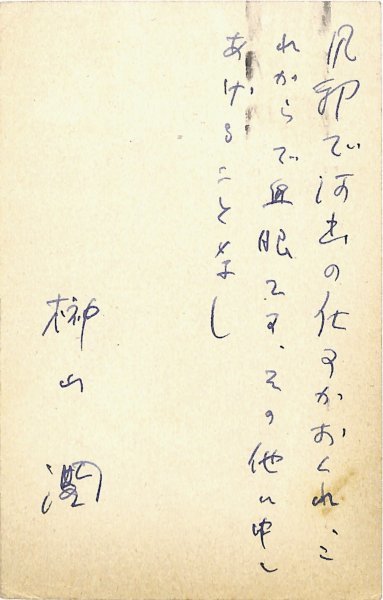 風邪で河出の仕事がおくれ、こ
れからで並眼です、その他に申し
あげることなし
榊山
潤